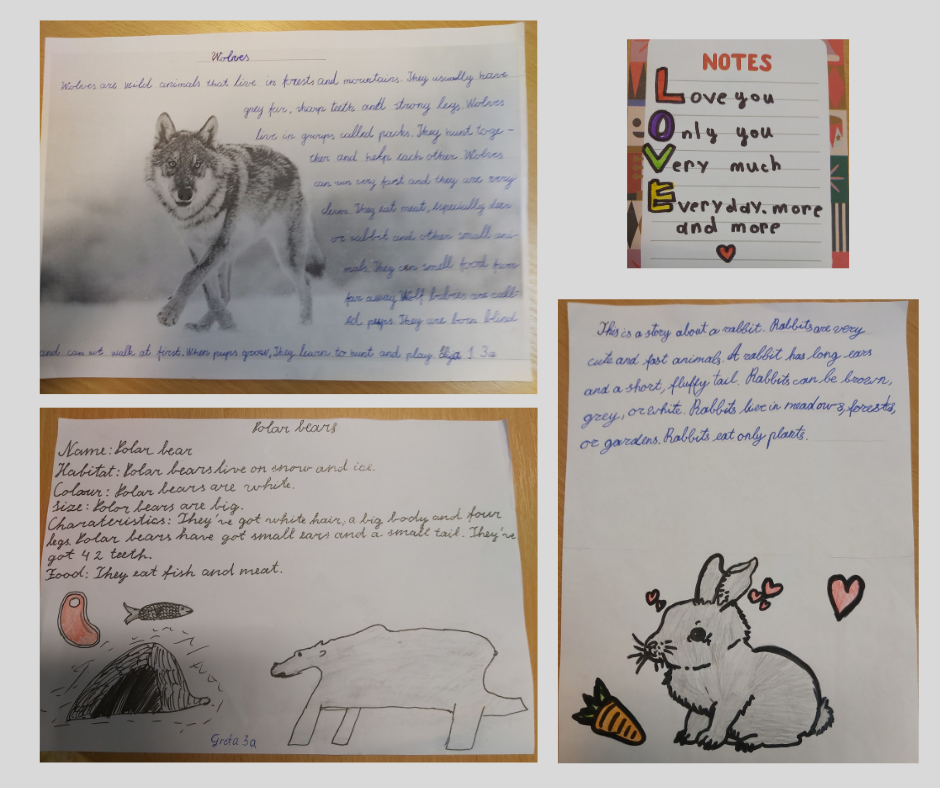 Wolves
Wolves are wild animals that live in forests and mountains. They usually have
grey fur, sharp teeth and strong legs. Wolves
live in groups called packs. They hunt toge-
ther and help each other. Wolves
can run very fast and they are very
clever. They eat meat, especially deer
or rabbit and other small ani-
mals. They can smell food from
far away. Wolf babies are call-
ed pups. They are born blind
and can not walk at first. When pups grow, They learn to hunt and play. 3a
NOTES
Love you
Only you
Very much
Everyday. more
and more
Polar bears
Name: Polar bear
Habitat: Polar bears live on snow and ice.
Colour: Polar bears are white.
Size: Polor bears are big.
Charateristics: They've got white hair, a big body and four
legs. Polar bears have got small ears and a small tail. They've
got 42 teeth.
Food: They eat fish and meat.
Greta 3a
This is a story about a rabbit. Rabbits are very
cute and fast animals. A rabbit has long ears
and a short, fluffy tail. Rabbits can be brown,
grey, or white. Rabbits live in meadows, forests,
or gardens. Rabbits eat only plants.